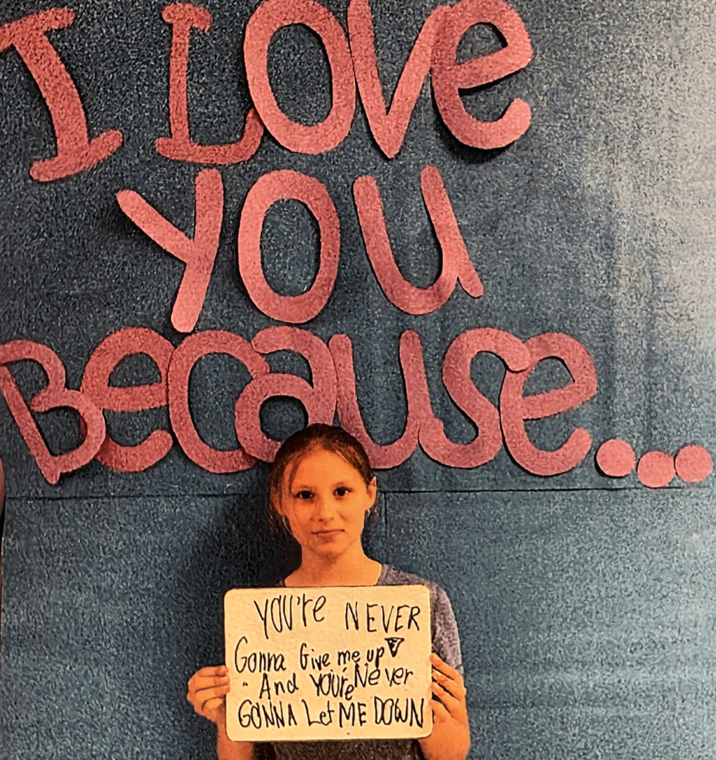 I LOVe
YOU
Because...
YOU're NEVER
Gonna Give me up
And YOU'Re Never
GONNA Let ME DOWN